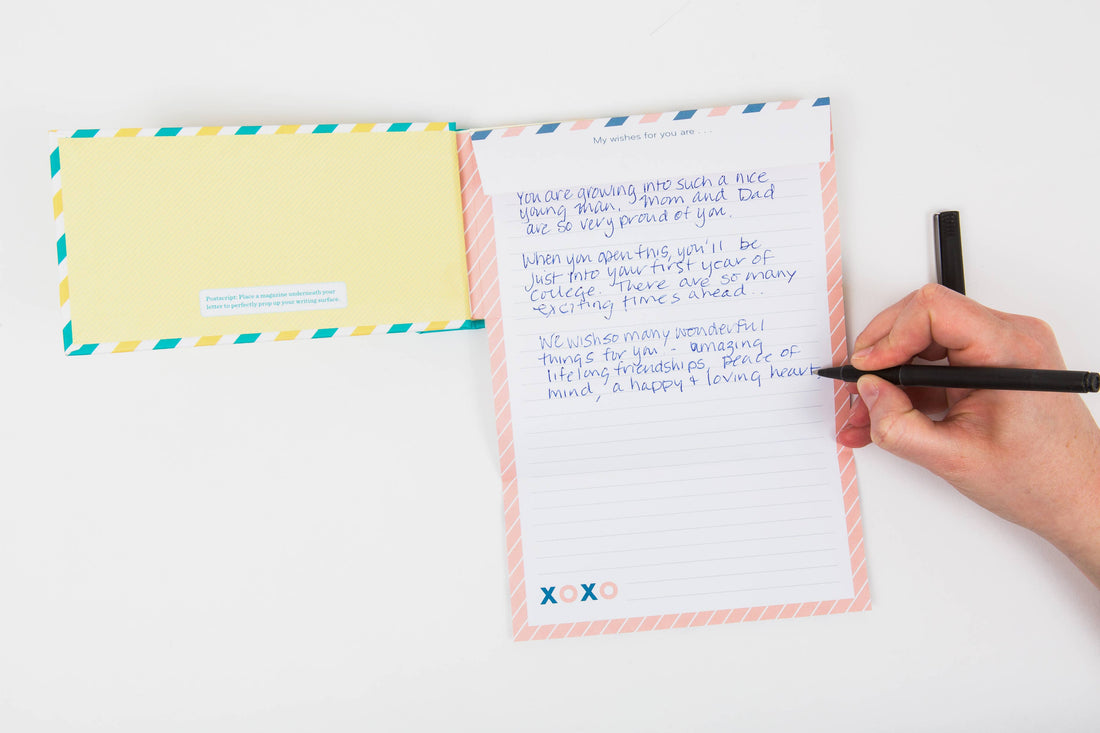 Postscript: Place a magazine underneath your
letter to perfectly prop up your writing surface.
My wishes for you are . . .
You are growing into such a nice
young man. Mom and Dad
are so very proud of you.
When you open this, you'll be
just into your first year of
college. There are so many
exciting times ahead..
We wish so many wonderful
things for you - amazing
lifelong friendships, peace of
mind, a happy + loving heart,
XOXO